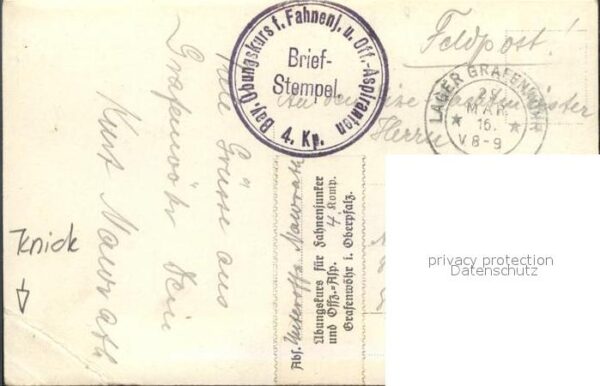 Feldpost!
Bay. Übungskurs f. Fahnenj. u. Off.-Aspiranten
Brief-
Stempel
4. Kp.
LAGER GRAFENWÖHR
MAR
16.
V 8-9
Herrn
Grüsse aus
Grafenwöhr Dein
Kurt Mawrath
Abs. Unteroffz. Mawrath
Übungskurs für Fahnenjunker
und Offz.-Asp. 4 Komp.
Grafenwöhr i. Oberpfalz.
Knick
privacy protection
Datenschutz